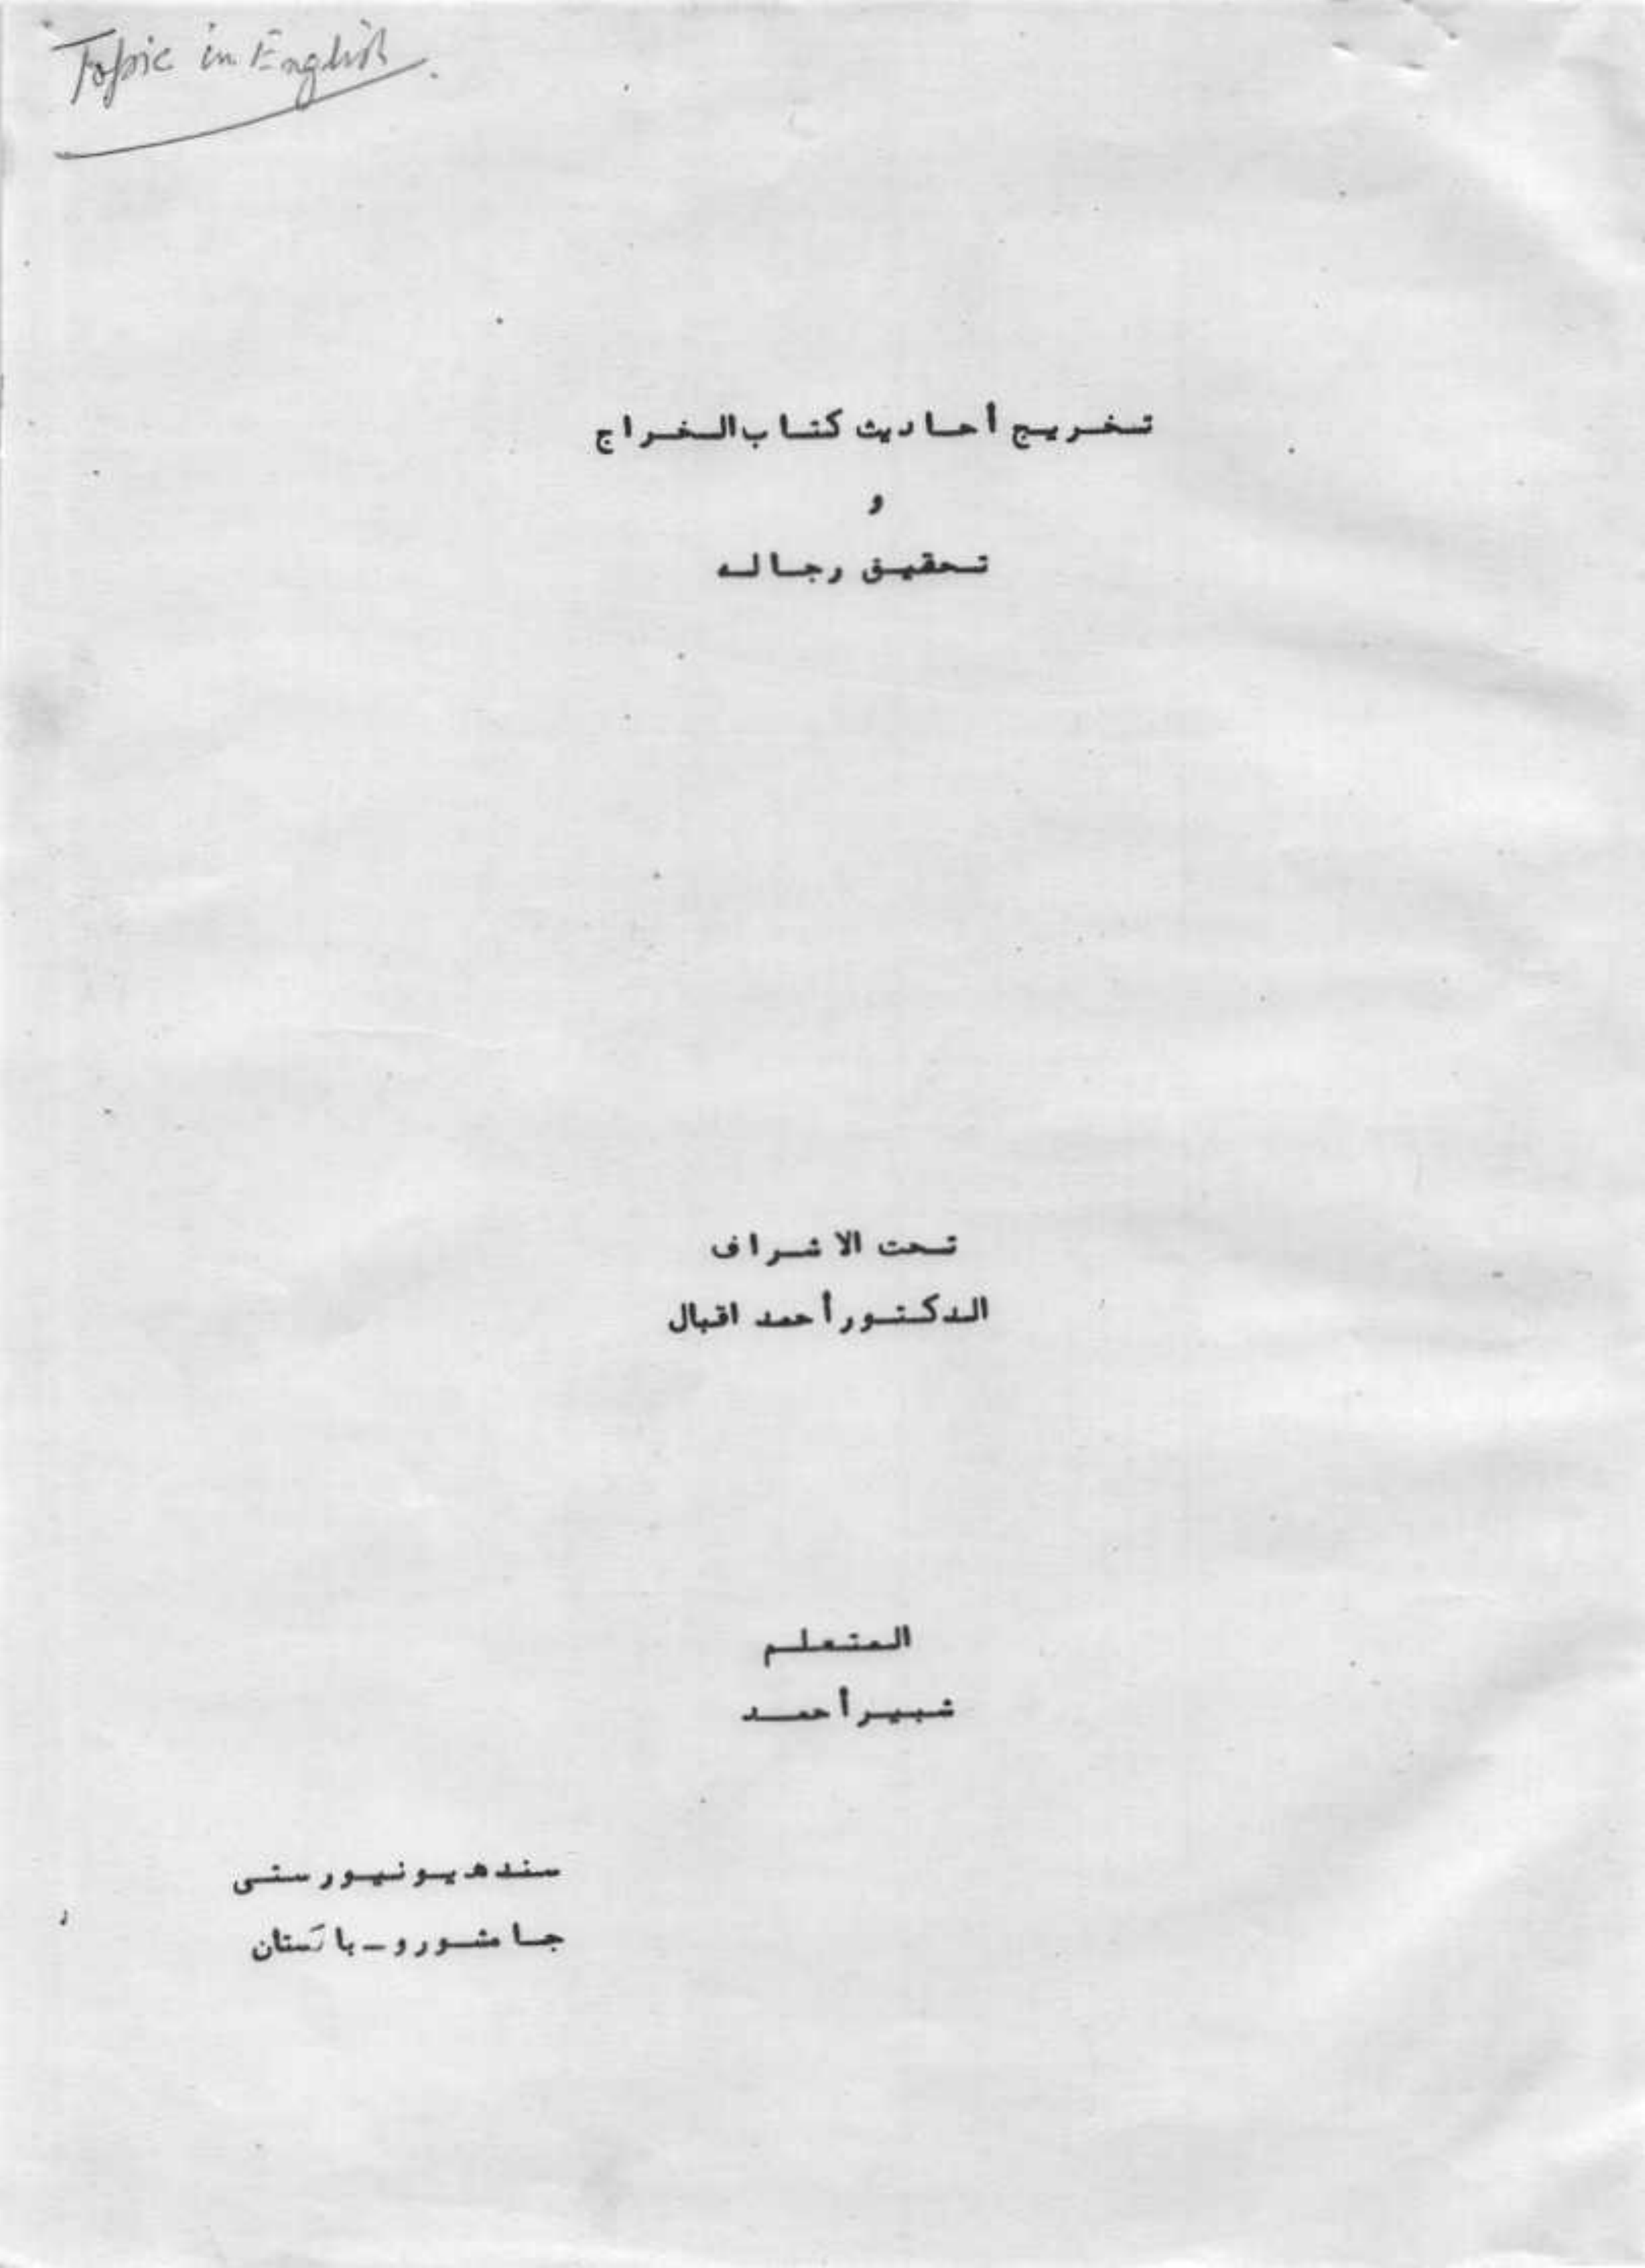 Topic in English.
تخريج أحاديث كتاب الخراج
و
تحقيق رجاله
تحت الاشراف
الدكتور أحمد اقبال
المتعلم
شبير أحمد
سندھ يونيورستى
جامشورو - باكستان